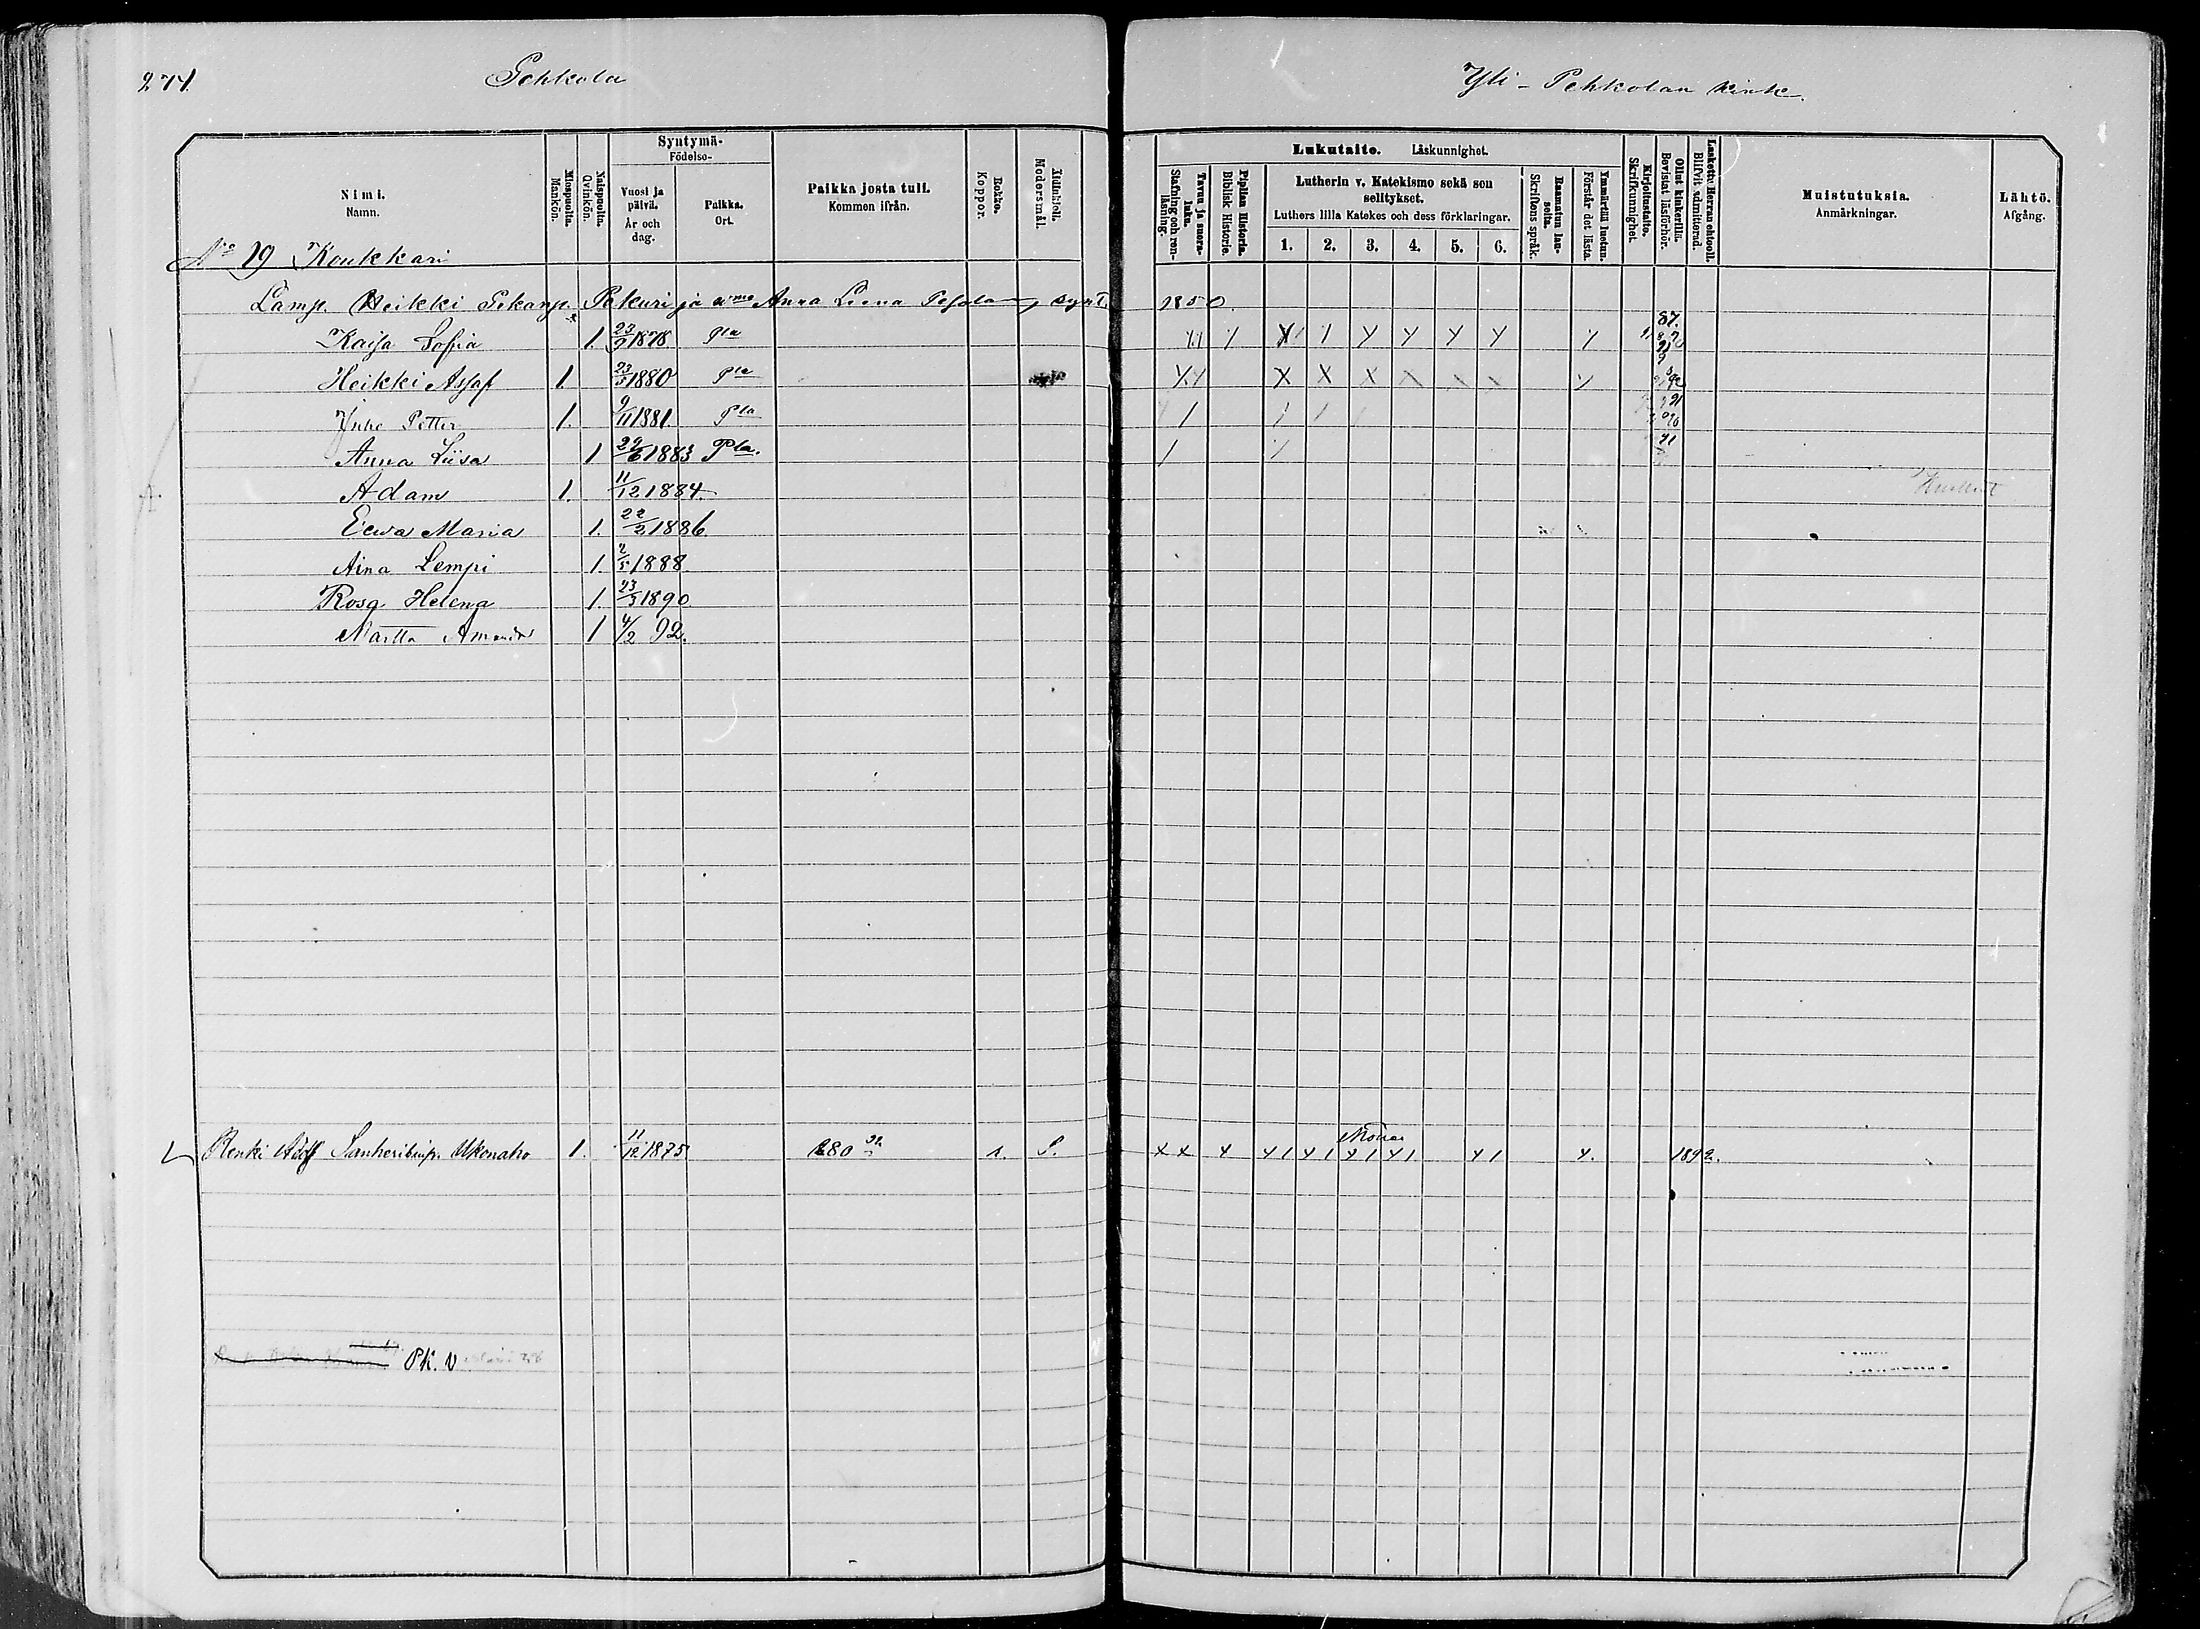 274.
Pehkola
Yli-Pehkolan kink.
Nimi.
Namn.
Miespuolia.
Mankön.
Naispuolia.
Qvinkön.
Syntymä-
Födelse-
Vuosi ja päivä.
År och dag.
Paikka.
Ort.
Paikka josta tuli.
Kommen ifrån.
Rokko.
Koppor.
Äitinkieli.
Modersmål.
Lukutaito. Läskunnighet.
Tavuu ja suora-luku.
Stafning och ren-läsning.
Piplian Historia.
Biblisk Historie.
Lutherin v. Katekismo sekä sen selitykset.
Luthers lilla Katekes och dess förklaringar.
1. 2. 3. 4. 5. 6.
Raamatun lau-seita.
Skriftens språk.
Ymmärtää luetun.
Förstår det lästa.
Kirjoitustaito.
Skrifkunnighet.
Ollut kinkerillä.
Bevistat läsförhör.
Laskettu Herran ehtooll.
Blifvit admitterad.
Muistutuksia.
Anmärkningar.
Lähtö.
Afgång.
No 19 Koukkari
Lamp. Heikki Pekanp. Pekuri ja vmo Anna Leena synt. 1850
Kaisa Sofia 1. 23/9 1878 Pla 87.
Heikki Assaf 1. 23/5 1880 Pla
Juho Petter 1. 9/11 1881. Pla
Anna Liisa 1 29/6 1883 Pla.
Adam 1. 11/12 1884.
Eewa Maria 1. 22/2 1886
Aina Lempi 1. 2/5 1888
Rosa Helena 1. 23/3 1890
Martta Amanda 1 4/2 92.
Renki Adolf Sanheribinp. Ukonaho 1. 11/12 1875 280 1. S. x x x x 1 x 1 x 1 x 1 x 1 x. 1892.
PK. V